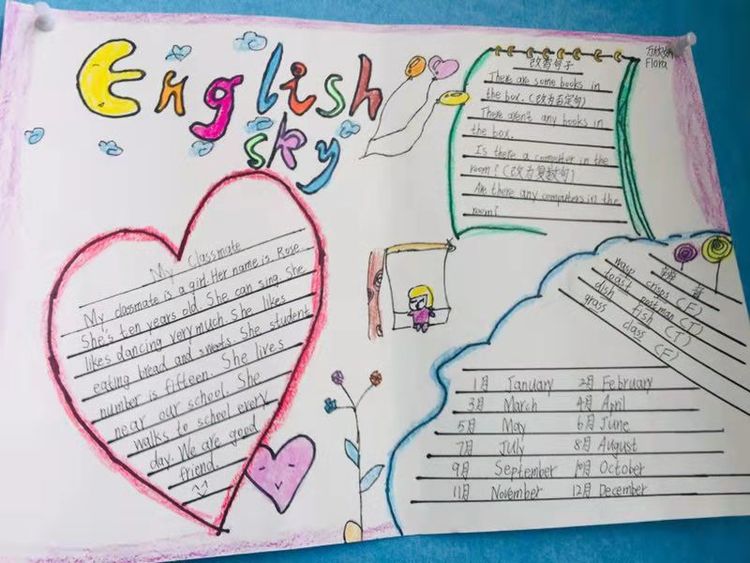 English
sky
Flora
改写句子
There are some books in
the box. (改为否定句)
There aren't any books in
the box.
Is there a computer in the
room? (改为复数句)
Are there any computers in the
room?
My classmate
My classmate is a girl. Her name is Rose
She's ten years old. She can sing. She
likes dancing very much. She likes
eating bread and sweets. She student
number is fifteen. She lives
near our school. She
walks to school every
day. We are good
friend.
wasp crisps (F)
toast postman (T)
dish fish (T)
grass class (F)
1月 January 2月 February
3月 March 4月 April
5月 May 6月 June
7月 July 8月 August
9月 September 10月 October
11月 November 12月 December